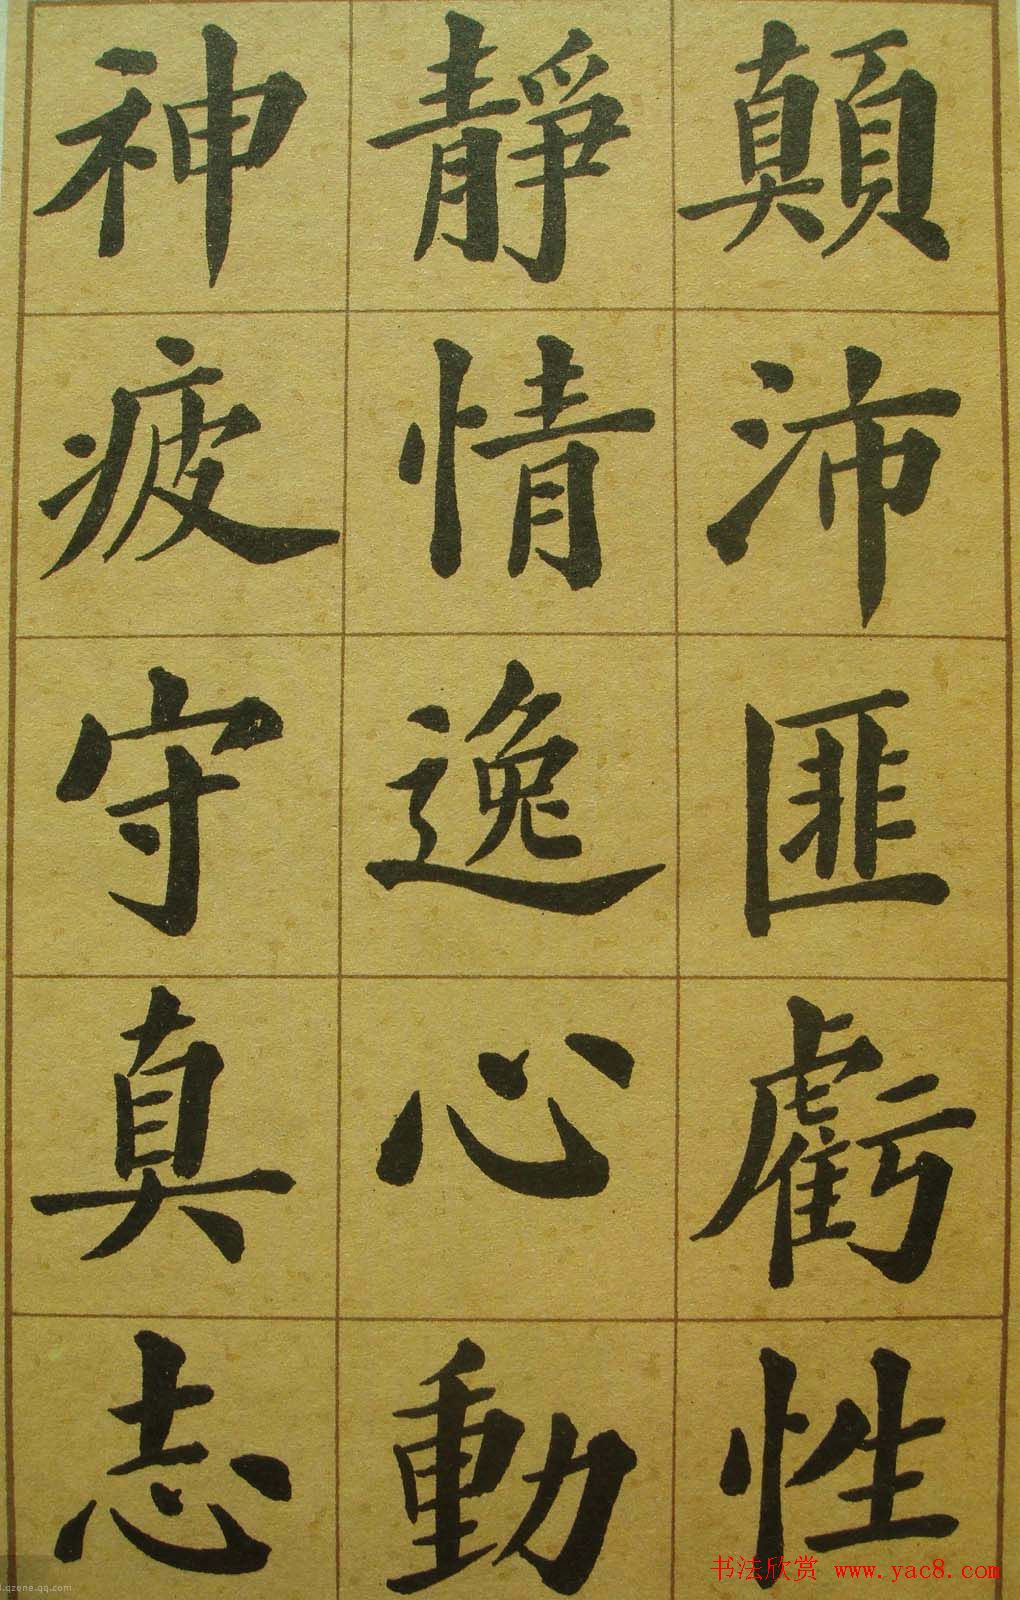 顛沛匪虧性
靜情逸心動
神疲守真志
书法欣赏 www.yac8.com
.qzone.qq.com